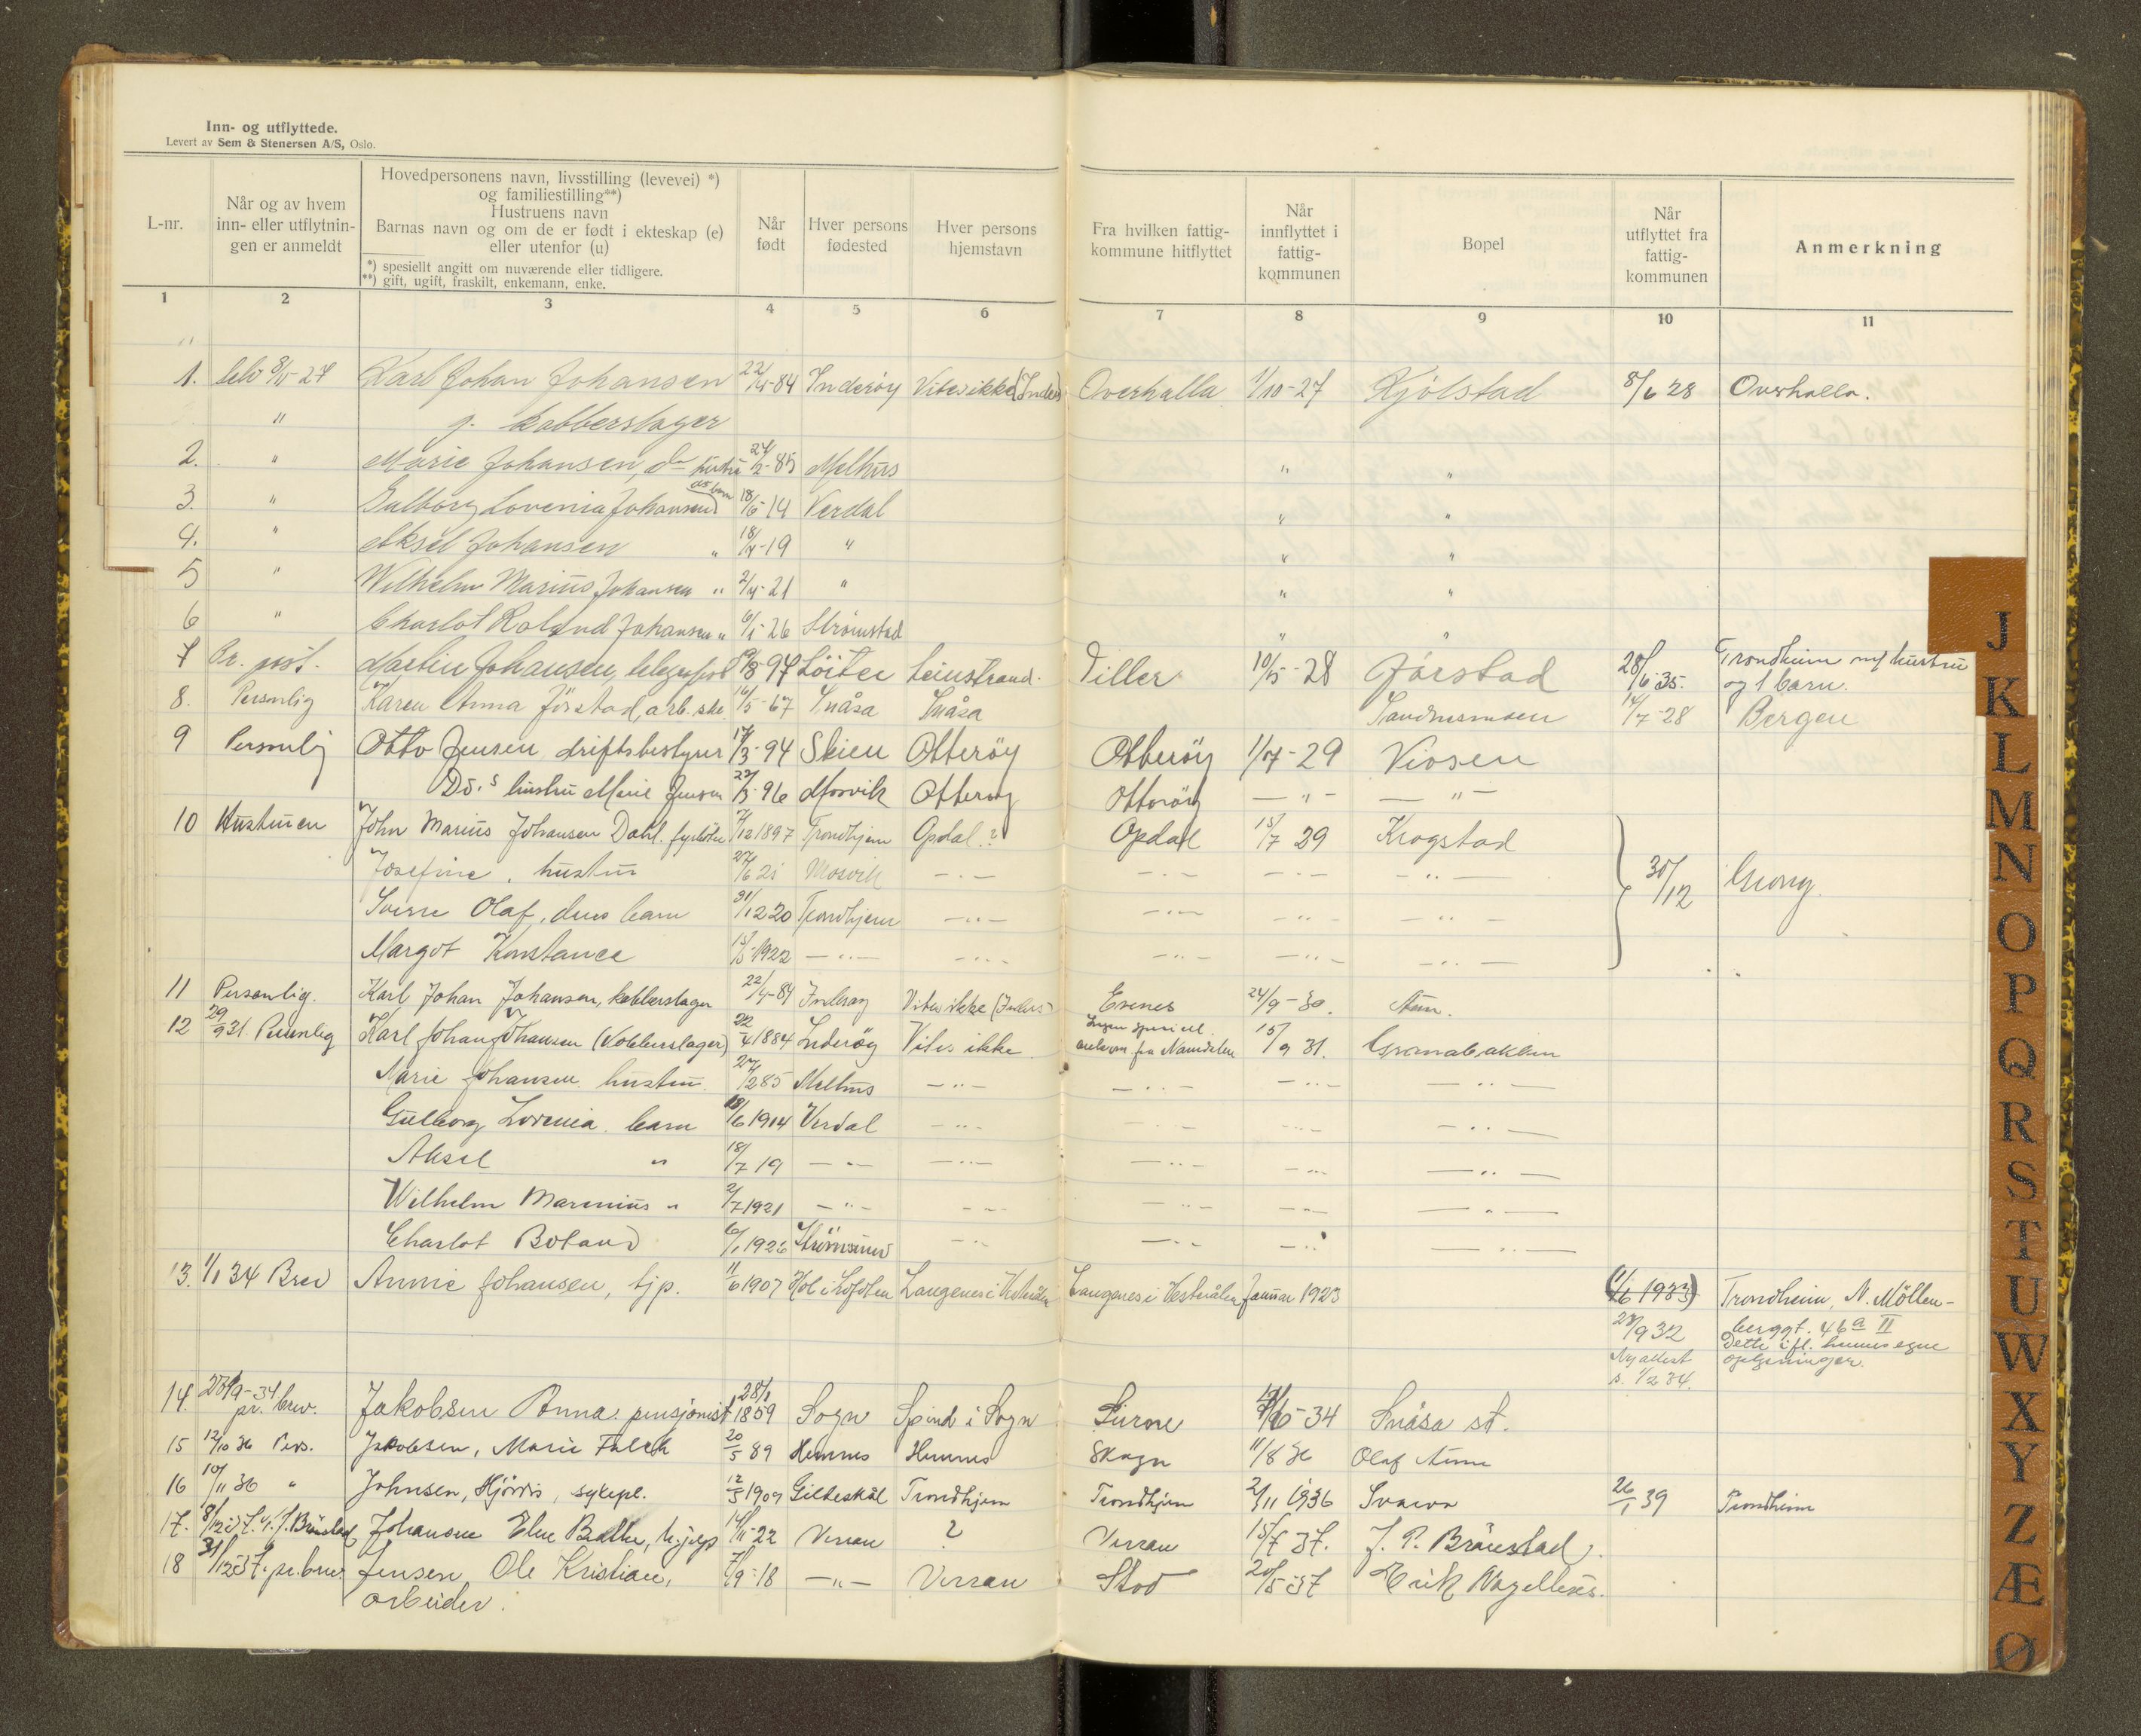 Inn- og utflyttede.
Levert av Sem & Stenersen A/S, Oslo.
L-nr.
Når og av hvem inn- eller utflytnin-gen er anmeldt
Hovedpersonens navn, livsstilling (levevei) *)
og familiestilling**)
Hustruens navn
Barnas navn og om de er født i ekteskap (e)
eller utenfor (u)
*) spesiellt angitt om nuværende eller tidligere.
**) gift, ugift, fraskilt, enkemann, enke.
Når født
Hver persons fødested
Hver persons hjemstavn
Fra hvilken fattig-kommune hitflyttet
Når innflyttet i fattig-kommunen
Bopel
Når utflyttet fra fattig-kommunen
Anmerkning
1 2 3 4 5 6 7 8 9 10 11
1. Karl Johan Johansen 22/4-84 Inderøy Vites ikke (Inderø) Overhalla 1/10-27 Kjölstad 8/6 28 Overhalla.
" g. kobberslager
2. " Marie Johansen, do hustru 24/2-85 Melhus " "
3. " Gulborg Lovenia Johansen do barn 18/6-14 Verdal " "
4. " Aksel Johansen " 18/7-19 " " "
5 " Wilhelm Marius Johansen " 2/7-21 " " "
6 " Charlot Roland Johansen " 6/1-26 Strömstad " "
7 Pr. post. Martin Johansen, 97 Löiten Leinstrand. Tiller 10/5-28 Jörstad 28/6-35. Trondheim m/ hustru
og 1 barn.
8. Personlig Karen Anna Jörstad, arb. ske 16/5-67 Snåsa Snåsa Sandnesmoen 14/7-28 Bergen
9 Personlig Otto Jensen driftsbestyrer 17/3-94 Skien Otteröy Otteröy 1/7-29 Viosen
Do.s hustru Marie Jensen 96 Mosvik Otteröy Otteröy - " - - " -
10 Hustruen John Marius Johansen Dahl. fyrböter 1897 Trondhjem Opdal.? Opdal 15/7 29 Krogstad
Josefine, hustru Mosvik - " - - " - - " - - " - 30/12 Grong.
Sverre Olaf, deres barn 31/12 20 Trondhjem - " - - " - - " - - " -
Margot Konstance 15/5-1922 - " - - " - - " - - " - - " -
11 Personlig. Karl Johan Johansen, kobberslager 22/4-84 Inderøy Vites ikke (Inderö) Evenes 24/9-30.
12 29/9 31. Personlig Karl Johan Johansen (Kobberslager) 22/4 1884 Inderöy Vites ikke. Ingen spesiell
ankom. fra Namdalen 15/9 31. Granabakken
Marie Johansen hustru. 24/2 85 Melhus - " - - " - - " - - " -
Gulborg Lovenia barn 18/6 1914 Verdal - " - - " - - " - - " -
Aksel " 18/7 19 - " - - " - - " - - " - - " -
Wilhelm Marenius " 2/7 1921 - " - - " - - " - - " - - " -
Charlot Boland 6/1 1926 - " - - " - - " - - " -
13. 1/1 34 Brev Annie Johansen, tjp. 11/6 1907 Hol i Lofoten Langenes i Vesterålen Langenes i Vesterålen Januar 1923 (1/6 1933) Trondheim, N. Möllen-
28/9 32 berggt. 46 a II
Dette ifl. hennes egne
Ny attest opLysninger.
s. 1/2 34.
14. pr. brev. Jakobsen Anna pensjonist 28/1 1859 Sogn Spind i Sogn 34 Snåsa st.
15 12/10 36 Pers. Jakobsen, Marie Falch 20/5 89 Hemnes Hemnes Skogn 11/8 36 Olaf
16 10/11 36 " Johnsen, Hjördis, sykepl. 12/3 1909 Gildeskål Trondhjem Trondhjem 2/11 1936 Svarva 26/1 39 Trondheim
17. 8/12-37. v. J. Brönstad Johansen Else 14/11-22 Verran ? Verran 15/7 37. J. P. Brönstad.
18 31/12-37. pr. brev Jensen, Ole Kristian, 7/9-18 - " - Verran Stod 20/5-37 Erik
arbeider.
J
K
L
M
N
O
P
Q
R
S
T
U
W
X
Y
Z
Æ
Ø